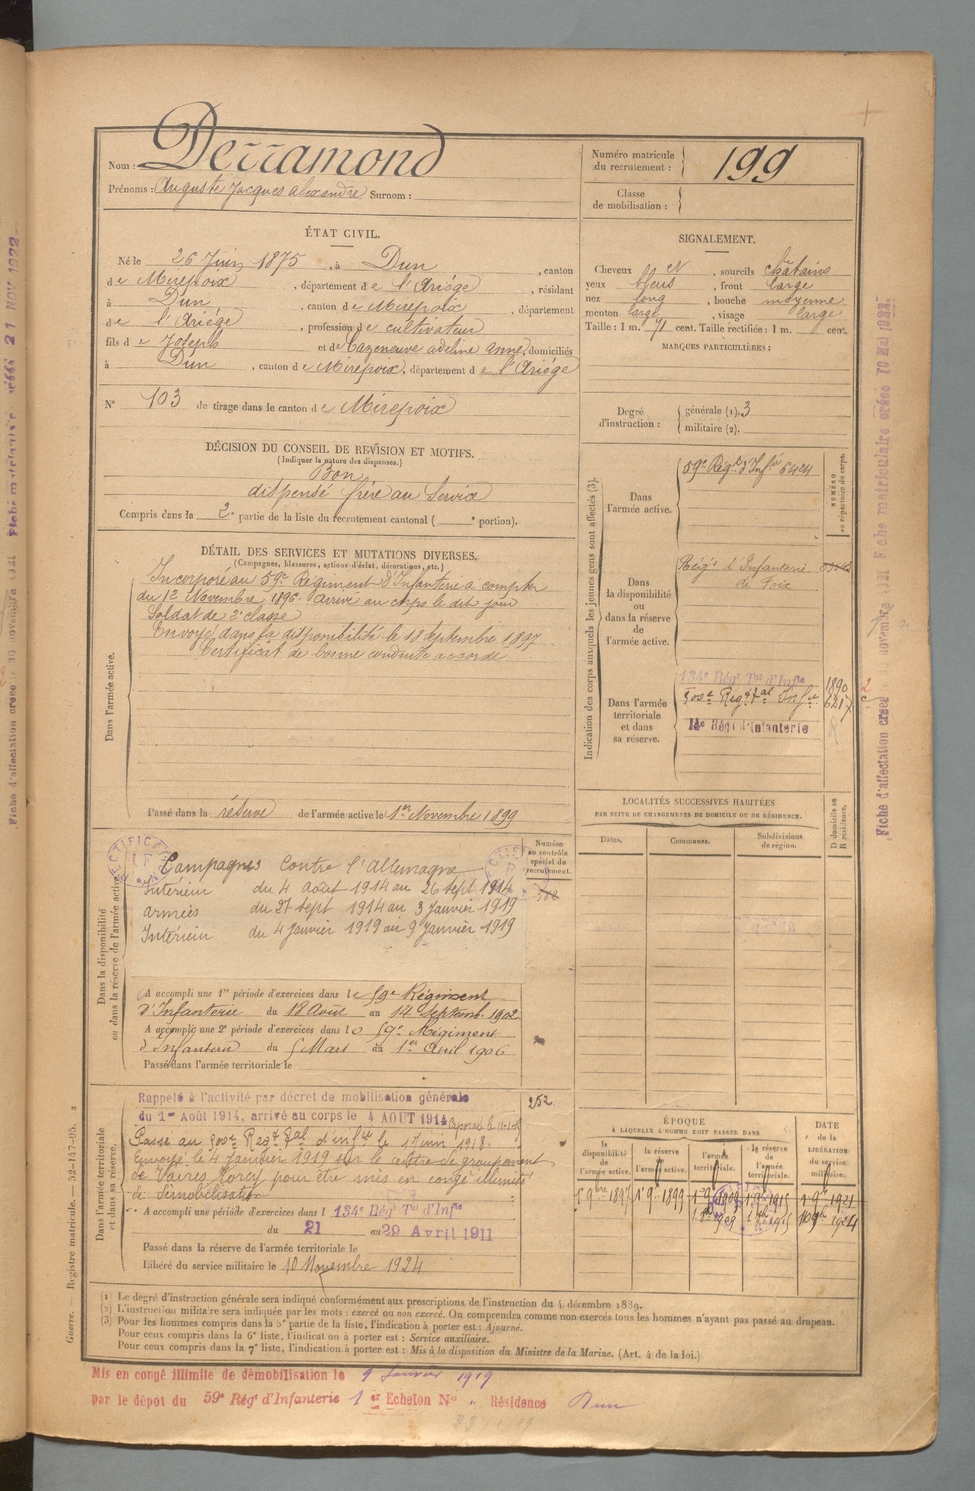 Nom : Derramond
Prénoms : Auguste Jacques Alexandre Surnom :
Numéro matricule du recrutement : 199
Classe de mobilisation :
ÉTAT CIVIL.
Né le 26 Juin 1875, à Dun, canton
de Mirepoix, département de l'Ariège, résidant
à Dun, canton de Mirepoix, département
de l'Ariége, profession de cultivateur
fils de Joseph et de Cazeneuve adeline anne, domiciliés
à Dun, canton de Mirepoix, département de l'Ariége
N° 103 de tirage dans le canton de Mirepoix
DÉCISION DU CONSEIL DE REVISION ET MOTIFS.
(Indiquer la nature des dispenses.)
Bon
dispensé frère au Service
Compris dans la 2e partie de la liste du recrutement cantonal ( e portion).
SIGNALEMENT.
Cheveux N, sourcils châtains
yeux bleus, front large
nez long, bouche moyenne
menton large, visage large
Taille : 1 m. 71 cent. Taille rectifiée : 1 m. cent.
MARQUES PARTICULIÈRES :
Degré d'instruction : générale (1). 3
militaire (2).
DÉTAIL DES SERVICES ET MUTATIONS DIVERSES.
(Campagnes, blessures, actions d'éclat, décorations, etc.)
Dans l'armée active.
Incorporé au 59e Régiment d'Infanterie à compter
du 12 Novembre 1896 arrivé au corps le dit jour
Soldat de 2e classe
Envoyé dans la disponibilité le 18 Septembre 1897
Certificat de bonne conduite accordé
Passé dans la réserve de l'armée active le 1er Novembre 1899
Indication des corps auxquels les jeunes gens sont affectés (3).
NUMÉRO au répertoire du corps.
Dans l'armée active.
59e Régt d'Infie 6424
Dans la disponibilité ou dans la réserve de l'armée active.
Régt d'Infanterie
de Foix
Dans l'armée territoriale et dans sa réserve.
134e Régt Tal d'Infie 1890
500e Regt Tal Infie 6217
14e Régt d'Infanterie
LOCALITÉS SUCCESSIVES HABITÉES
PAR SUITE DE CHANGEMENTS DE DOMICILE OU DE RÉSIDENCE.
Dates.
Communes.
Subdivisions de région.
D domicile ou R résidence.
Dans la disponibilité ou dans la réserve de l'armée active.
Numéro au contrôle spécial du recrutement.
Campagnes Contre l'Allemagne
Intérieur du 4 août 1914 au 26 sept 1914
armées du 27 sept 1914 au 3 Janvier 1919
Intérieur du 4 Janvier 1919 au 9 Janvier 1919
A accompli une 1re période d'exercices dans le 59e Régiment
d'Infanterie du 18 Août au 14 Septemb. 1902
A accompli une 2e période d'exercices dans le 59e Régiment
d'Infanterie du 5 Mars au 1er Avril 1906
Passé dans l'armée territoriale le
Dans l'armée territoriale et dans sa réserve.
Rappelé à l'activité par décret de mobilisation générale
du 1er Août 1914, arrivé au corps le 4 AOUT 1914
252
Passé au 500e Regt Tal d'infie le 1 Juin 1918.
Envoyé le 4 Janvier 1919 sur le centre de groupement
de Vaires Torcy pour être mis en congé illimité
de Démobilisation
A accompli une période d'exercices dans l 134e Régt Tal d'Infie
du 21 au 29 Avril 1911
Passé dans la réserve de l'armée territoriale le
Libéré du service militaire le 10 Novembre 1924
ÉPOQUE
À LAQUELLE L'HOMME DOIT PASSER DANS
la disponibilité de l'armée active.
la réserve de l'armée active.
l'armée territoriale.
la réserve de l'armée territoriale.
DATE de la LIBÉRATION du service militaire.
1er 9bre 1897 1er 9e 1899 1er 9e 1909 1er 9e 1915 1er 9e 1921
10 9bre 1924
(1) Le degré d'instruction générale sera indiqué conformément aux prescriptions de l'instruction du 4 décembre 1889.
(2) L'instruction militaire sera indiquée par les mots : exercé ou non exercé. On comprendra comme non exercés tous les hommes n'ayant pas passé au drapeau.
(3) Pour les hommes compris dans la 5e partie de la liste, l'indication à porter est : Ajourné.
Pour ceux compris dans la 6e liste, l'indication à porter est : Service auxiliaire.
Pour ceux compris dans la 7e liste, l'indication à porter est : Mis à la disposition du Ministre de la Marine. (Art. 4 de la loi.)
Mis en congé illimité de démobilisation le 9 Janvier 1919
par le dépôt du 59e Régt d'Infanterie 1er Echelon N° " Résidence Dun
Guerre. — Registre matricule. — 52-147-95.